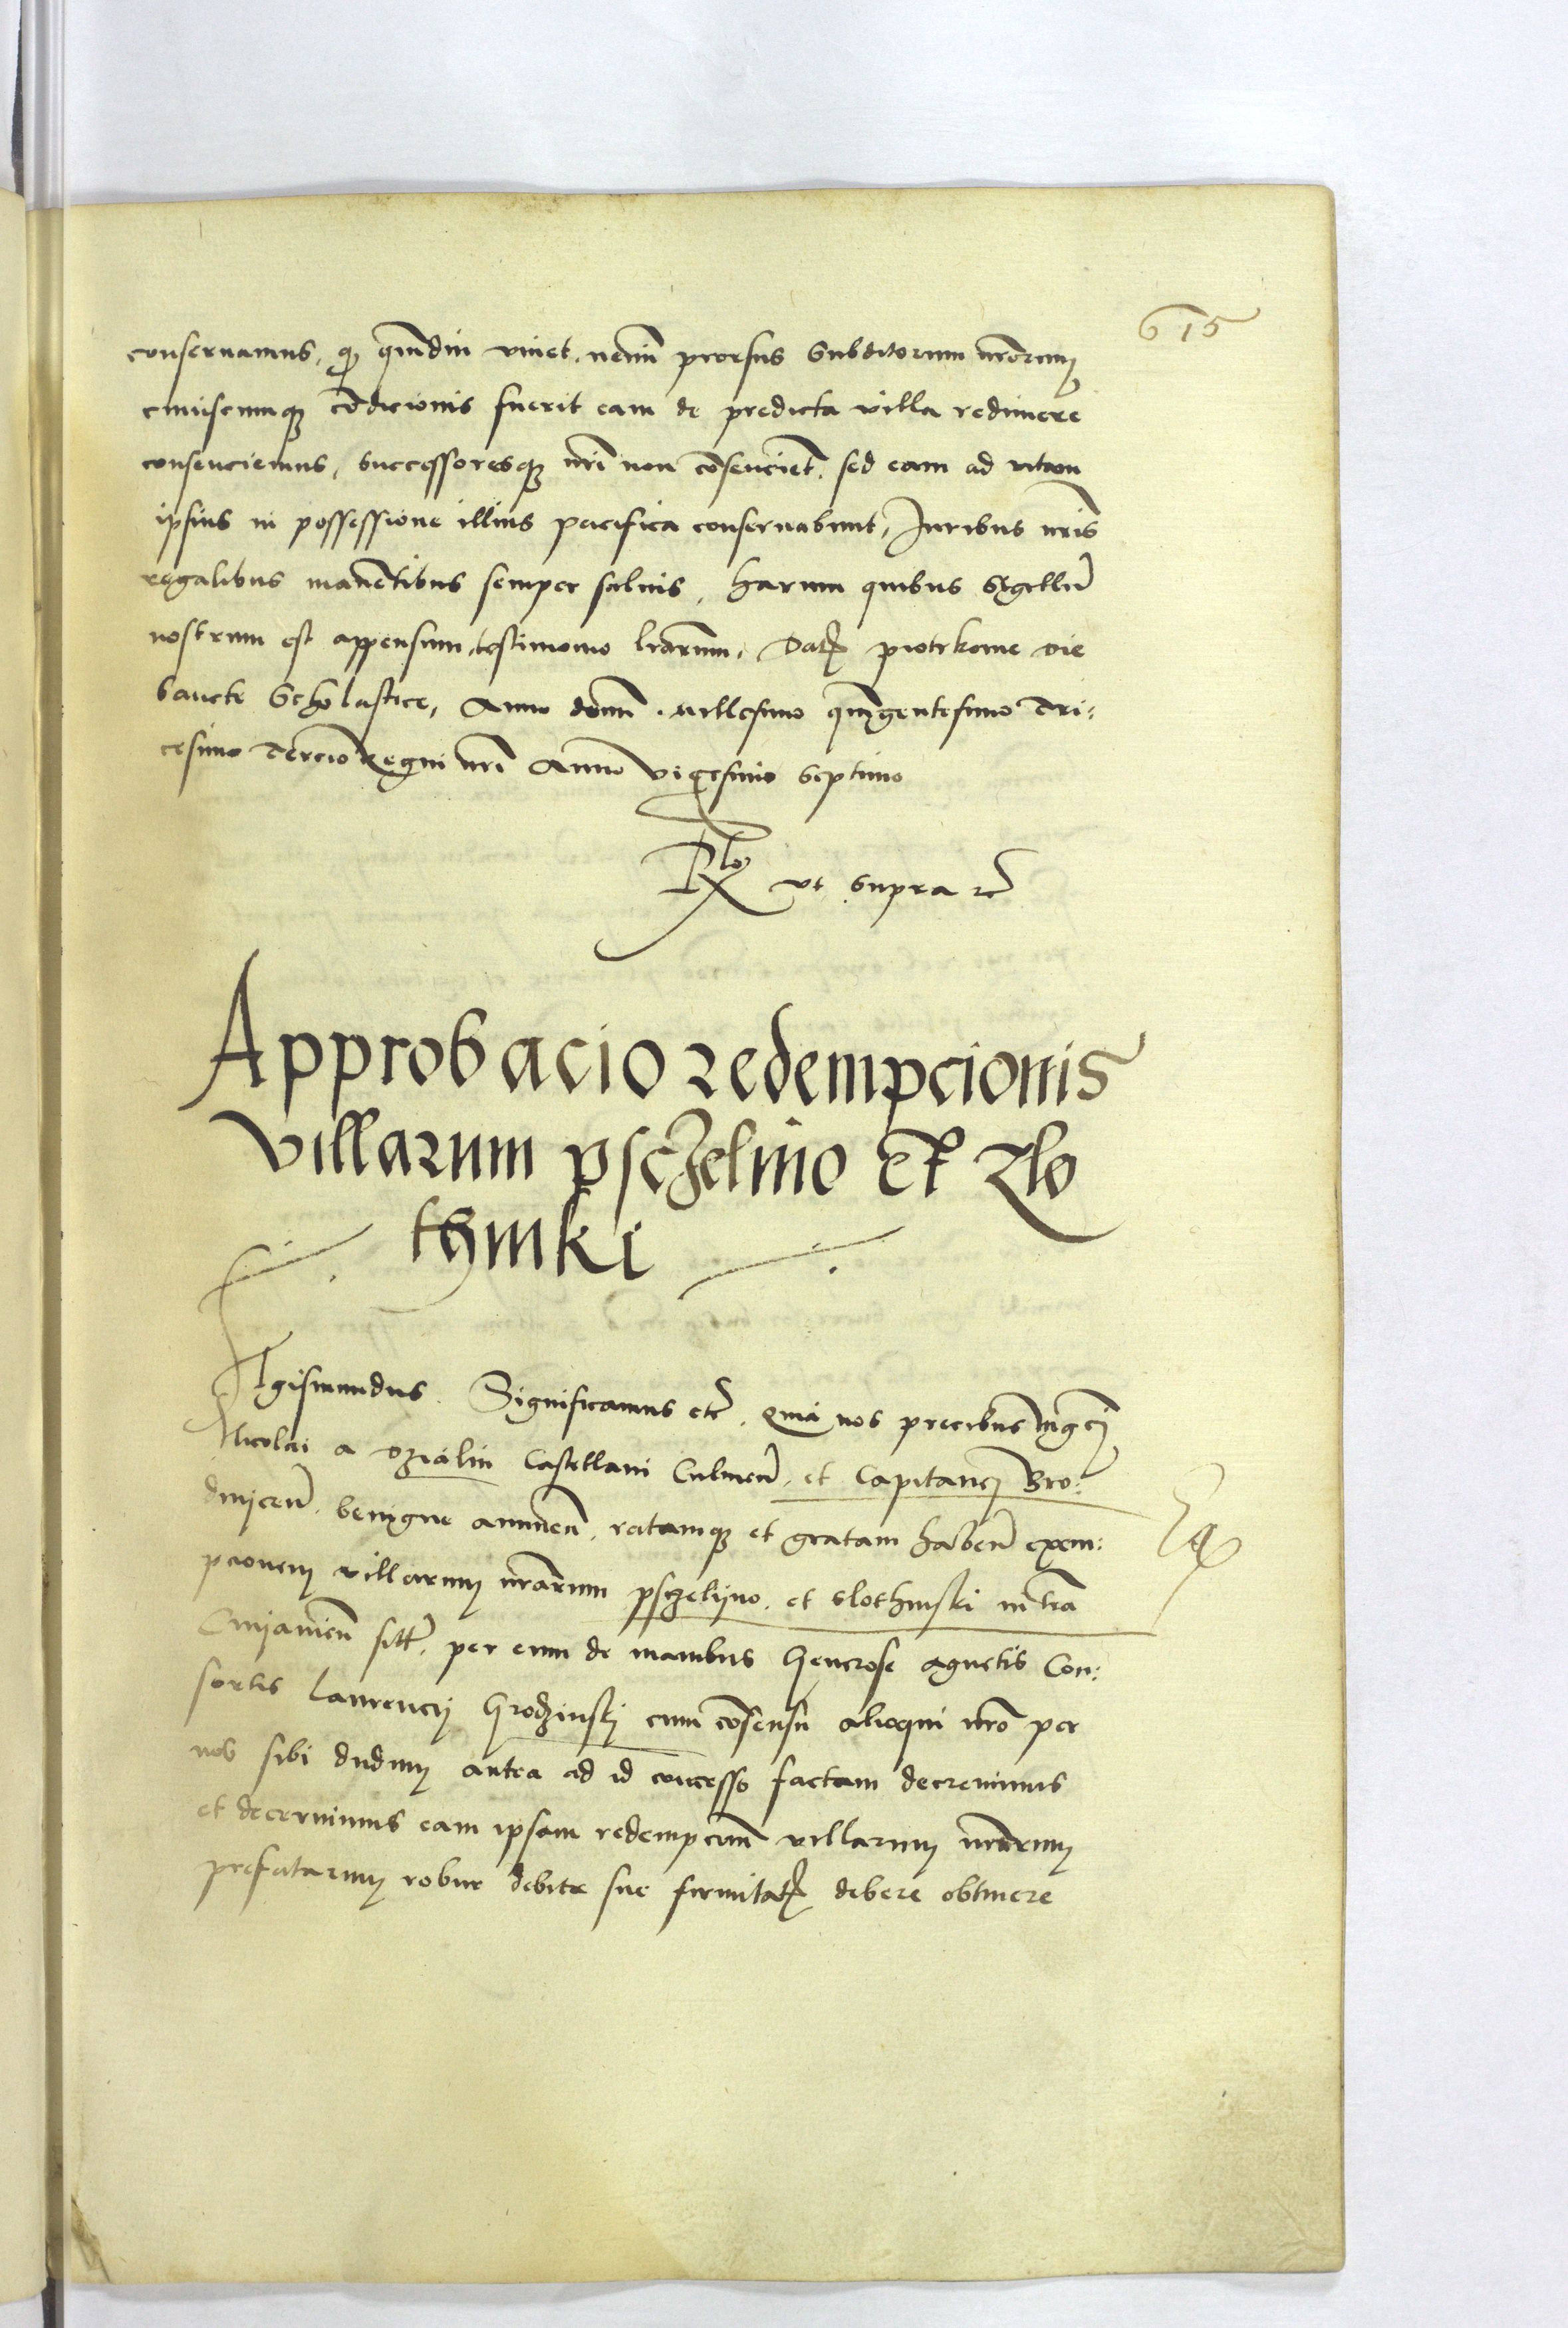 615
conseruamus, qȝ qmdiu viuet, nemi prorsus Subditorum nrorum
cuiuscumqȝ cõdicionis fuerit eam de predicta villa redimere
consenciemus, Successoresqȝ nri non cõsencient, sed eam ad vitam
ipsius in possessione illius pacifica conseruabunt, Iuribus nris
regalibus manẽtibus semper saluis, harum quibus Sigillũ
nostrum est appensum, testimonio lrarum, Datȝ piotrkowie die
Sancte Scholastice, Anno domi millesimo quingentesimo Tri:
cesimo Tercio Regni nri Anno vigesimo Septimo
Rlo vt Supra rc
Approbacio redempcionis
villarum psczelino et Slo
thynki
Sigismundus. Significamus etc. Quia nos precibus mgci
Nicolai a Dzialin Castellani Culmeñ, et Capitanej Bro:
dnijceñ. benigne annueñ, ratamqȝ et gratam habeñ exem:
pcionem villarum nrarum psczelijno, et Slothinski in tra
Cuijauieñ sitt, per eum de manibus Generose Agnetis Con:
sortis Laurencij Grodzinskj cum cõsensu alioqui nro per
nos sibi dudum antea ad id concesso factam decreuimus
et decernimus eam ipsam redempcionẽ villarum nrarum
prefatarum robur debite sue firmitatȝ debere obtinere